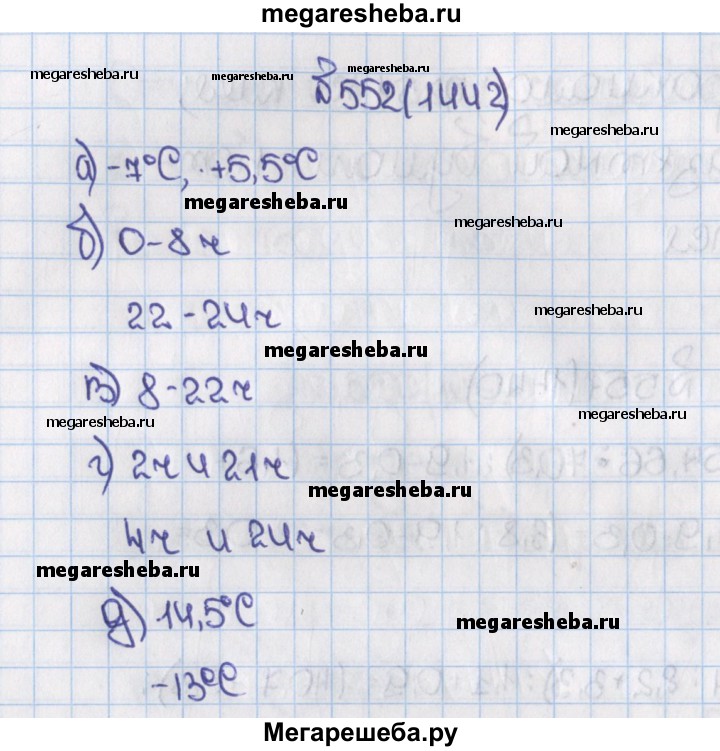 megaresheba.ru
megaresheba.ru megaresheba.ru megaresheba.ru
№552(1442)
megaresheba.ru
а) -7°C, +5,5°C
megaresheba.ru
megaresheba.ru
б) 0-8ч
22-24ч
megaresheba.ru
megaresheba.ru
в) 8-22ч
megaresheba.ru
megaresheba.ru
г) 2ч и 21ч
megaresheba.ru
4ч и 24ч
megaresheba.ru
д) 14,5°C
megaresheba.ru
-13°C
Мегарешеба.ру